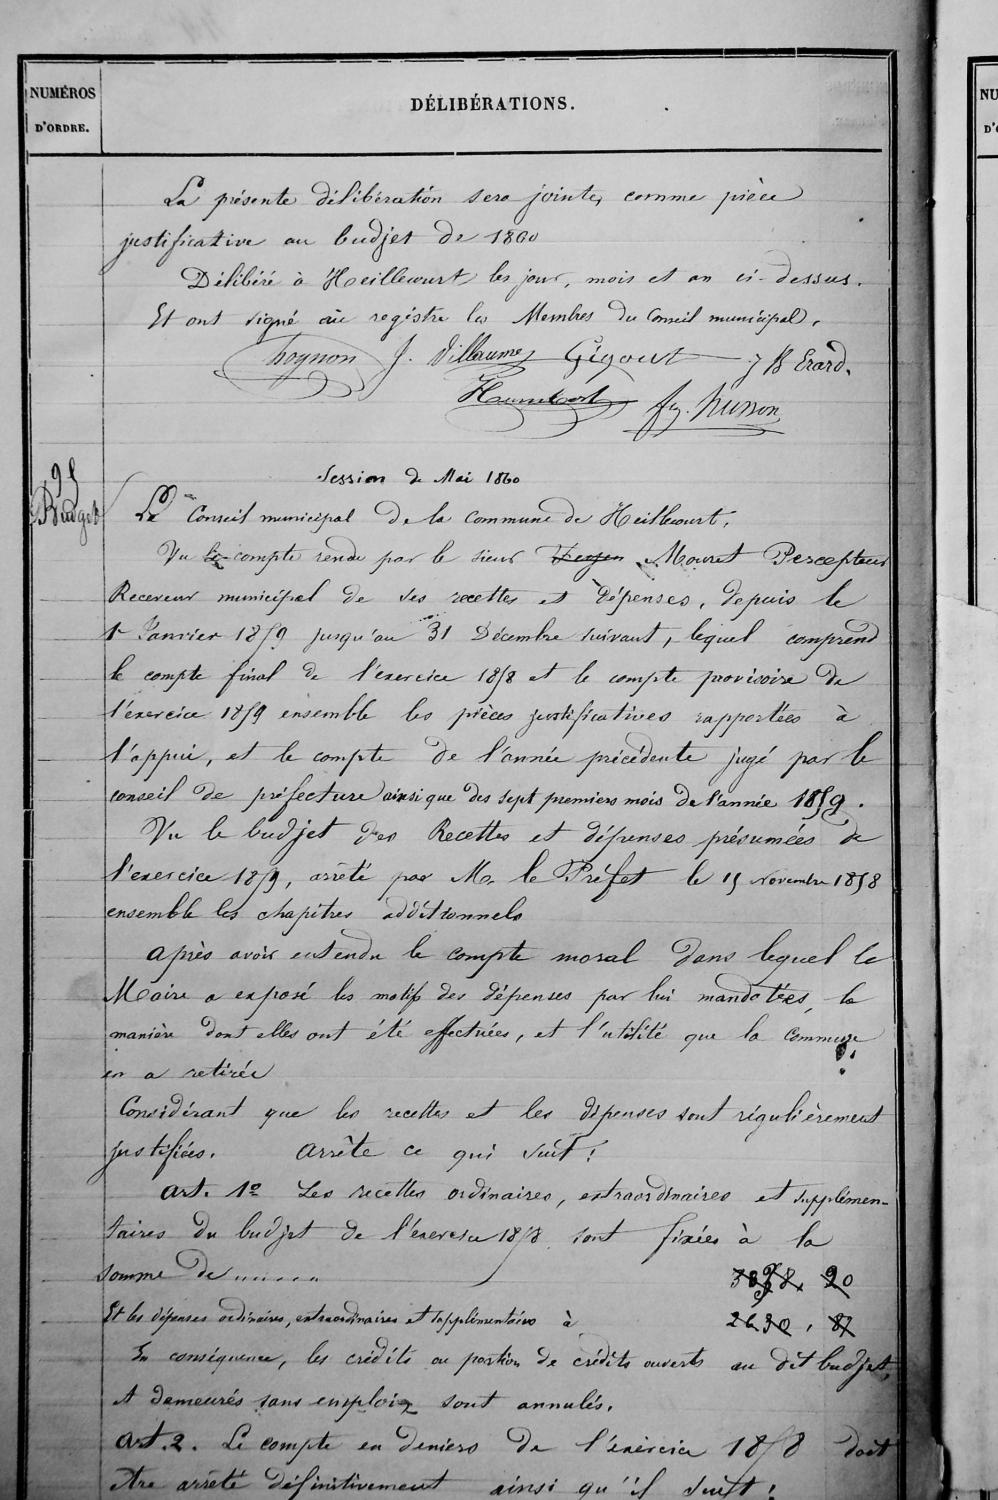 NUMÉROS
D'ORDRE.
DÉLIBÉRATIONS.
NU
D'
La présente délibération sera jointe, comme pièce
justificative au budjet de 1860
Délibéré à Heillecourt les jour, mois et an ci-dessus.
Et ont signé au registre les Membres du Conseil municipal.
Thoynon J. Villaume Gégout J B Erard.
Humbert fq. husson
95
Budget
Session de Mai 1860
Le Conseil municipal de la commune de Heillecourt.
Vu le compte rendu par le sieur Mouret Percepteur
Receveur municipal de ses recettes et dépenses, depuis le
1r Janvier 1859 jusqu'au 31 Décembre suivant, lequel comprend
le compte final de l'exercice 1858 et le compte provisoire de
l'exercice 1859 ensemble les pièces justificatives rapportées à
l'appui, et le compte de l'année précédente jugé par le
conseil de préfecture ainsi que des sept premiers mois de l'année 1859.
Vu le budjet des Recettes et dépenses présumées de
l'exercice 1859, arrêté par Mr le Préfet le 15 Novembre 1858
ensemble les chapitres additionnels
après avoir entendu le compte moral dans lequel le
Maire a exposé les motifs des dépenses par lui mandatées, la
manière dont elles ont été effectuées, et l'utilité que la commune
en a retirée
Considérant que les recettes et les dépenses sont régulièrement
justifiées. arrête ce qui suit:
art. 1o Les recettes ordinaires, extraordinaires et supplémen-
taires du budjet de l'exercice 1858 sont fixées à la
somme de ......
Et les dépenses ordinaires, extraordinaires et supplémentaires à 2630, 87
En conséquence, les crédits ou portion de crédits ouverts au dit budjet,
et demeurés sans emploi sont annulés.
art. 2. Le compte en deniers de l'exercice 1858 doit
être arrêté définitivement ainsi qu'il suit: